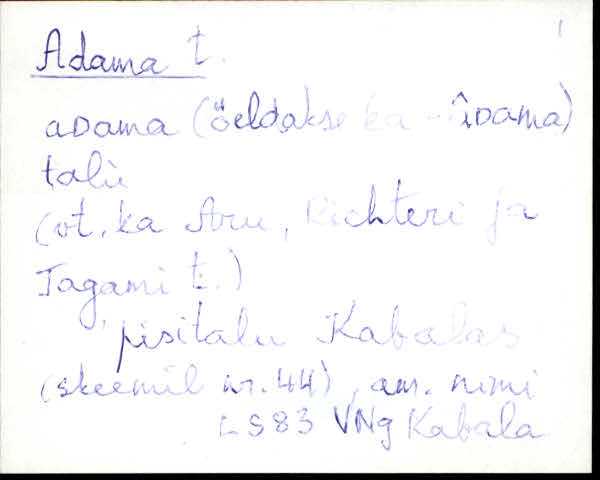 1
Adama t.
aDama (öeldakse ka - âDama)
talù
(vt. ka Aru, Richteri ja
Tagami t.)
pisitalu Kabalas
(skeemil nr. 44), am. nimi
LS83 VNg Kabala